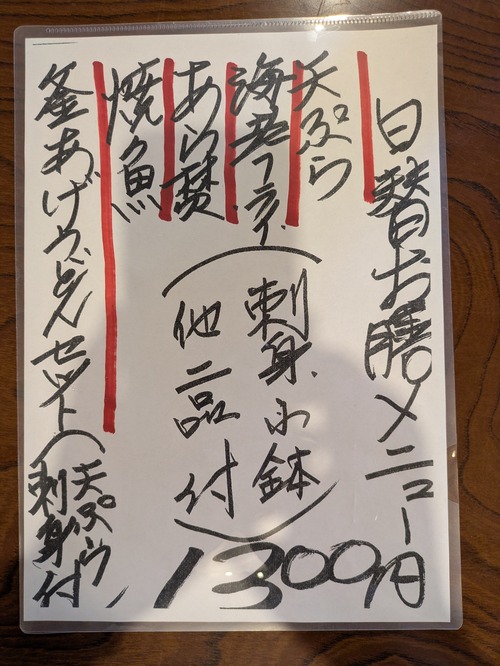 日替お膳メニュー
天ぷら
海老フライ
あら焚
焼魚
(刺身、小鉢
他二品付)
釜あげうどんセット(天ぷら、
刺身付)
1300円